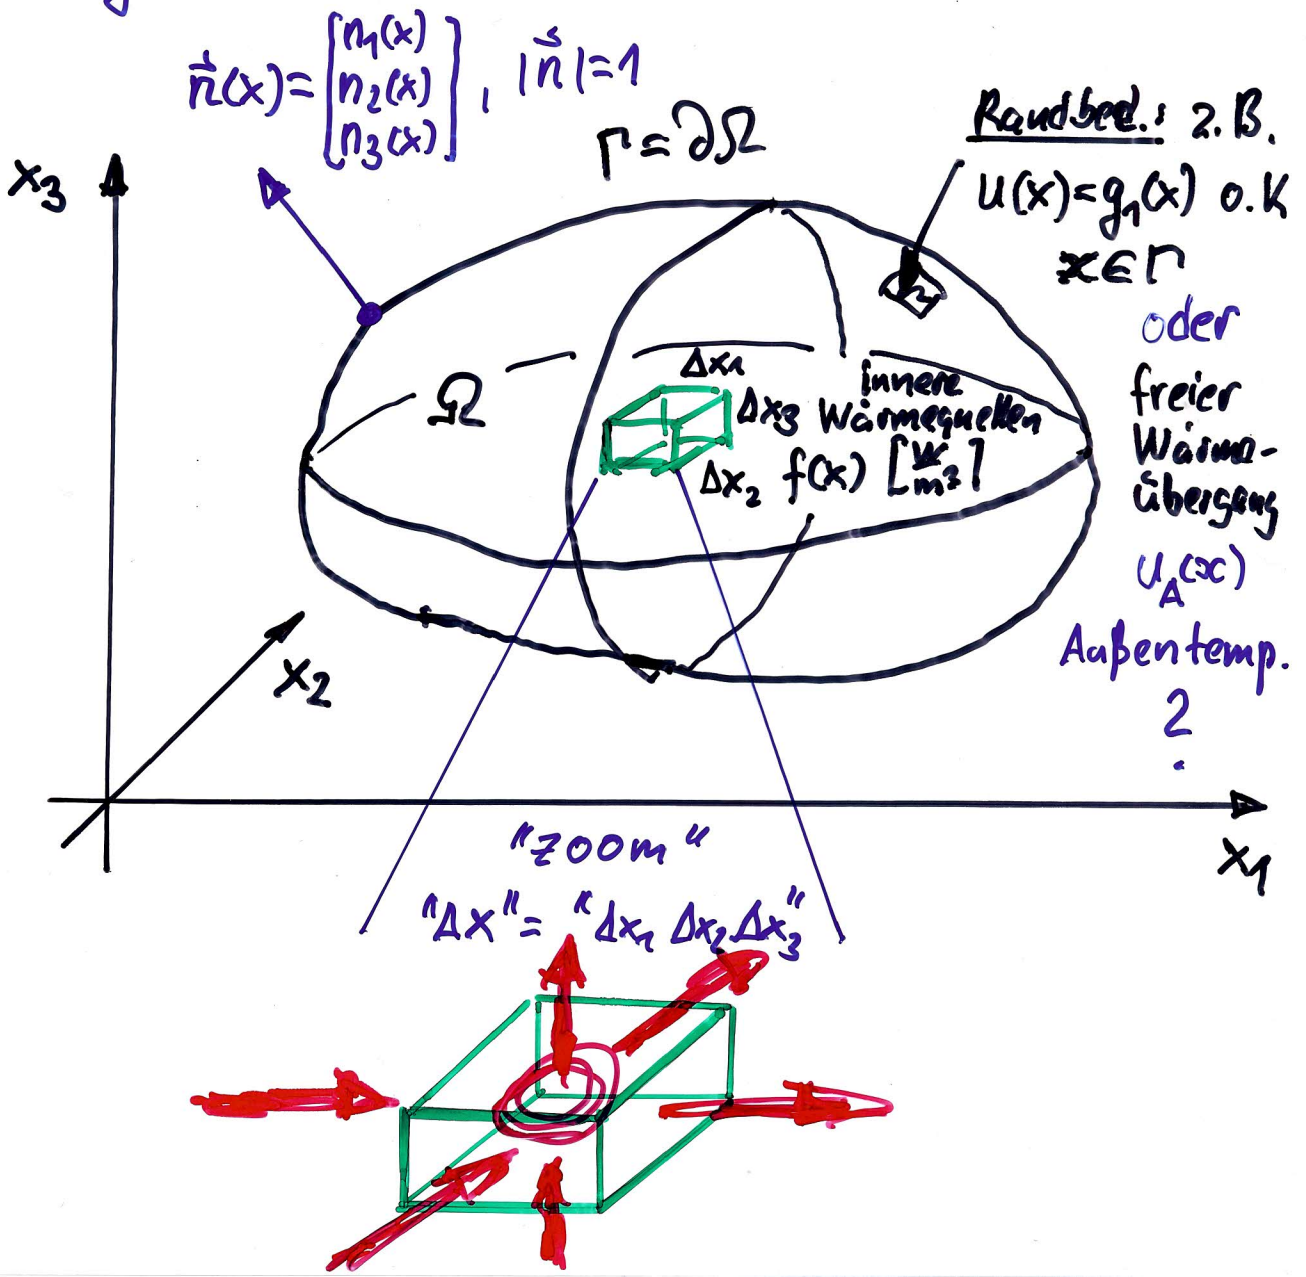 n⃗(x)=[n₁(x) n₂(x) n₃(x)], |n⃗|=1
Γ=∂Ω
Randbed.: z.B.
u(x)=g₁(x) o.K
x∈Γ
oder
freier
Wärme-
übergang
u_A(x)
Außentemp.
?
x₃
Ω
Δx₁
Δx₃
Δx₂
innere
Wärmequellen
f(x) [W/m³]
x₂
x₁
"Zoom"
"Δx" = "Δx₁ Δx₂ Δx₃"